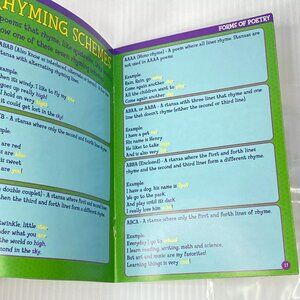 RHYMING SCHEMES
poems that rhyme, like
one of these seven rhyming
ABAB (Also know as interlaced, alternate
stanza with alternating rhyming lines.
When it's windy, I like to fly my
on very high
I hold on very tight
in the sky.
B - A stanza where only the second and fourth
are red
are blue
is sweet
are you.
double couplet) - A stanza where the first and second lines
then the third and fourth lines form a different rhyme.
twinkle, little star
wonder what you are
the world so high,
in the sky.
FORMS OF POETRY
AAAA (Mono rhyme) - A poem where all lines rhyme. Stanzas are
not used in AAAA poems
Example:
Rain, Rain, go away
Come again another day
All the children want to
Come again another day
AAXA, or AABA - A stanza with three lines that rhyme and one
line that doesn't rhyme (either the second or third line).
Example:
I have a pet
His name is Henry
He likes to take
And is also very
ABBA (Enclosed) - A stanza where the first and forth lines
rhyme and the second and third lines form a different rhyme.
Example:
I have a dog, his name is
We go to the park,
And play until it dark
I really love him
ABCA - A stanza where only the first and forth lines of rhyme.
Example:
Everyday I go to school
I learn reading, writing, math and science,
But art and music are my favorites!
Learning things is very cool!